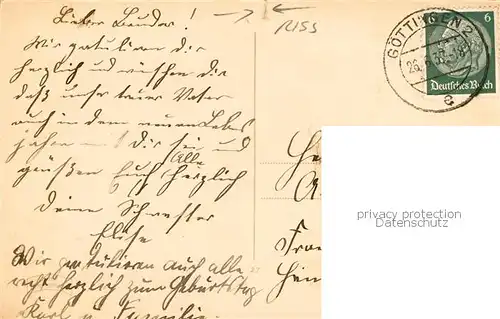 Lieber Bruder!
Wir gratulieren dir
herzlich und wünschen dir
daß unser teurer Vater
auch in dem neuen Lebens
jahre mit Dir sei und
grüßen Euch Alle herzlich
Deine Schwester
Elise
Wir gratulieren auch alle
recht herzlich zum Geburtstag
Karl u. Familie.
RISS
GÖTTINGEN 2
26.
e
6
Deutsches Reich
privacy protection
Datenschutz